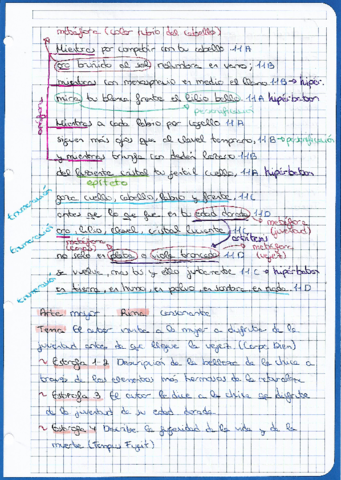 metáfora (color rubio del cabello)
Mientras por competir con tu cabello 11A
oro bruñido al sol relumbra en vano; 11B
mientras con menosprecio en medio el llano 11B → hipér.
mira tu blanca frente el lilio bello 11A hipérbaton
personificación
Mientras a cada labio por cogello 11A
siguen más ojos que al clavel temprano, 11B → personificación
y mientras triunfa con desdén lozano 11B
del luciente cristal tu gentil cuello, 11A hipérbaton
epíteto
anáfora
goza cuello, cabello, labio y frente, 11C
enumeración
antes que lo que fue en tu edad dorada 11D
metáfora (juventud)
oro, lilio, clavel, cristal luciente 11C
enumeración
metáfora (vejez)
no sólo en plata o viola troncada 11D
se vuelva, mas tú y ello juntamente 11C → hipérbaton
en tierra, en humo, en polvo, en sombra, en nada. 11D
enumeración
Arte: mayor Rima: consonante
Tema: El autor invita a la mujer a disfrutar de la
juventud antes de que llegue la vejez. (Carpe Diem)
~ Estrofa 1-2 Descripción de la belleza de la chica a
través de los elementos más hermosos de la naturaleza
~ Estrofa 3 El autor le dice a la chica que disfrute
de la juventud de su edad dorada.
~ Estrofa 4 Describe la fugacidad de la vida y de la
muerte (Tempus Fugit)